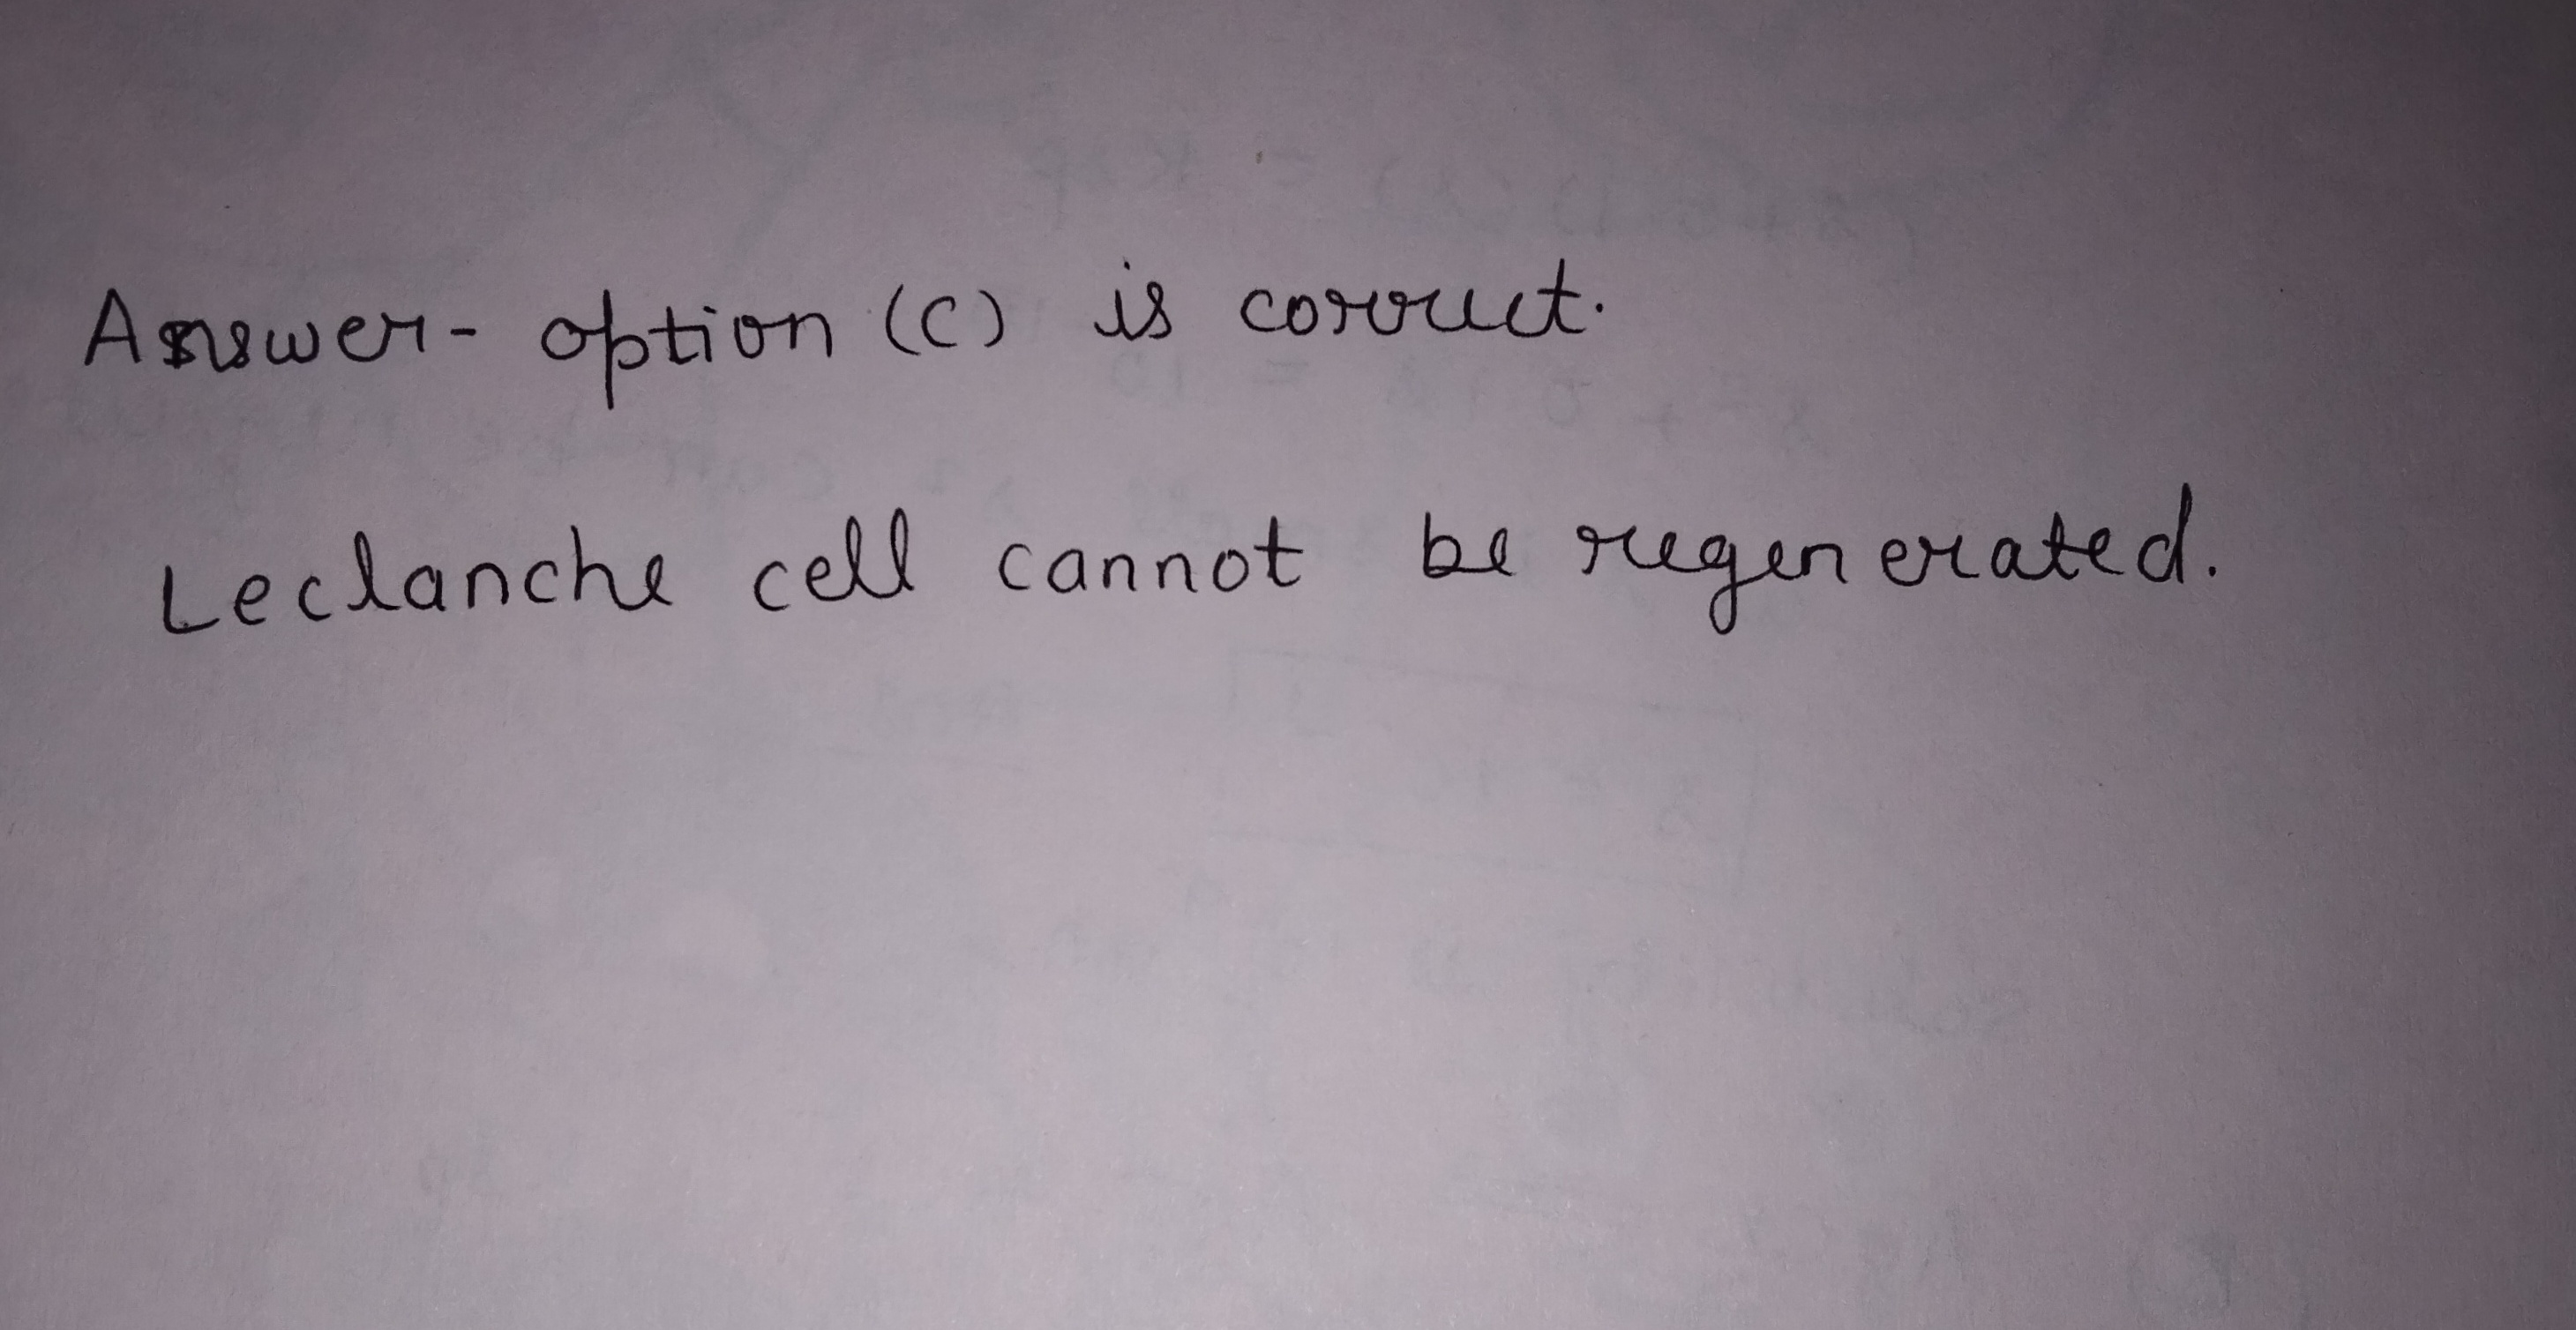 Answer- option (C) is correct.
Leclanche cell cannot be regenerated.